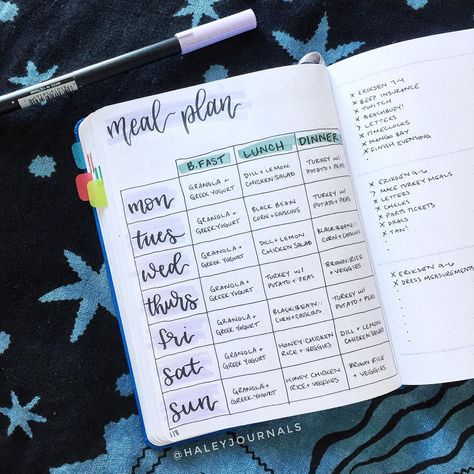 meal plan
B.FAST LUNCH DINNER
mon
GRANOLA +
GREEK YOGURT
DILL + LEMON
CHICKEN SALAD
TURKEY W/
POTATO + PEAS
tues
GRANOLA +
GREEK YOGURT
BLACK BEAN
CORN + COUSCOUS
TURKEY W/
POTATO + PEAS
wed
GRANOLA +
GREEK YOGURT
DILL + LEMON
CHICKEN SALAD
BLACK BEAN
CORN + COUSCOUS
thurs
GRANOLA +
GREEK YOGURT
TURKEY W/
POTATO + PEAS
BROWN RICE
+ VEGGIES
fri
GRANOLA +
GREEK YOGURT
BLACK BEAN
CORN + COUSCOUS
TURKEY W/
POTATO + PEAS
sat
GRANOLA +
GREEK YOGURT
HONEY CHICKEN
RICE + VEGGIES
DILL + LEMON
CHICKEN SALAD
sun
GRANOLA +
GREEK YOGURT
HONEY CHICKEN
RICE + VEGGIES
BROWN RICE
+ VEGGIES
118
X ERIKSEN 9-4
X BEEP INSURANCE
X TWITCH
X BEACHBODY!
> LETTERS
X TIMECLOCKS
X MANGO BAY
X FINISH EVENSONG
X ERIKSEN 9-6
X MAKE TURKEY MEALS
X LETTERS
X CHECKS
X PARIS TICKETS
X DRACS
X TAN!
X ERIKSEN 9-6
X DRESS MEASUREMENTS
@HALEYJOURNALS